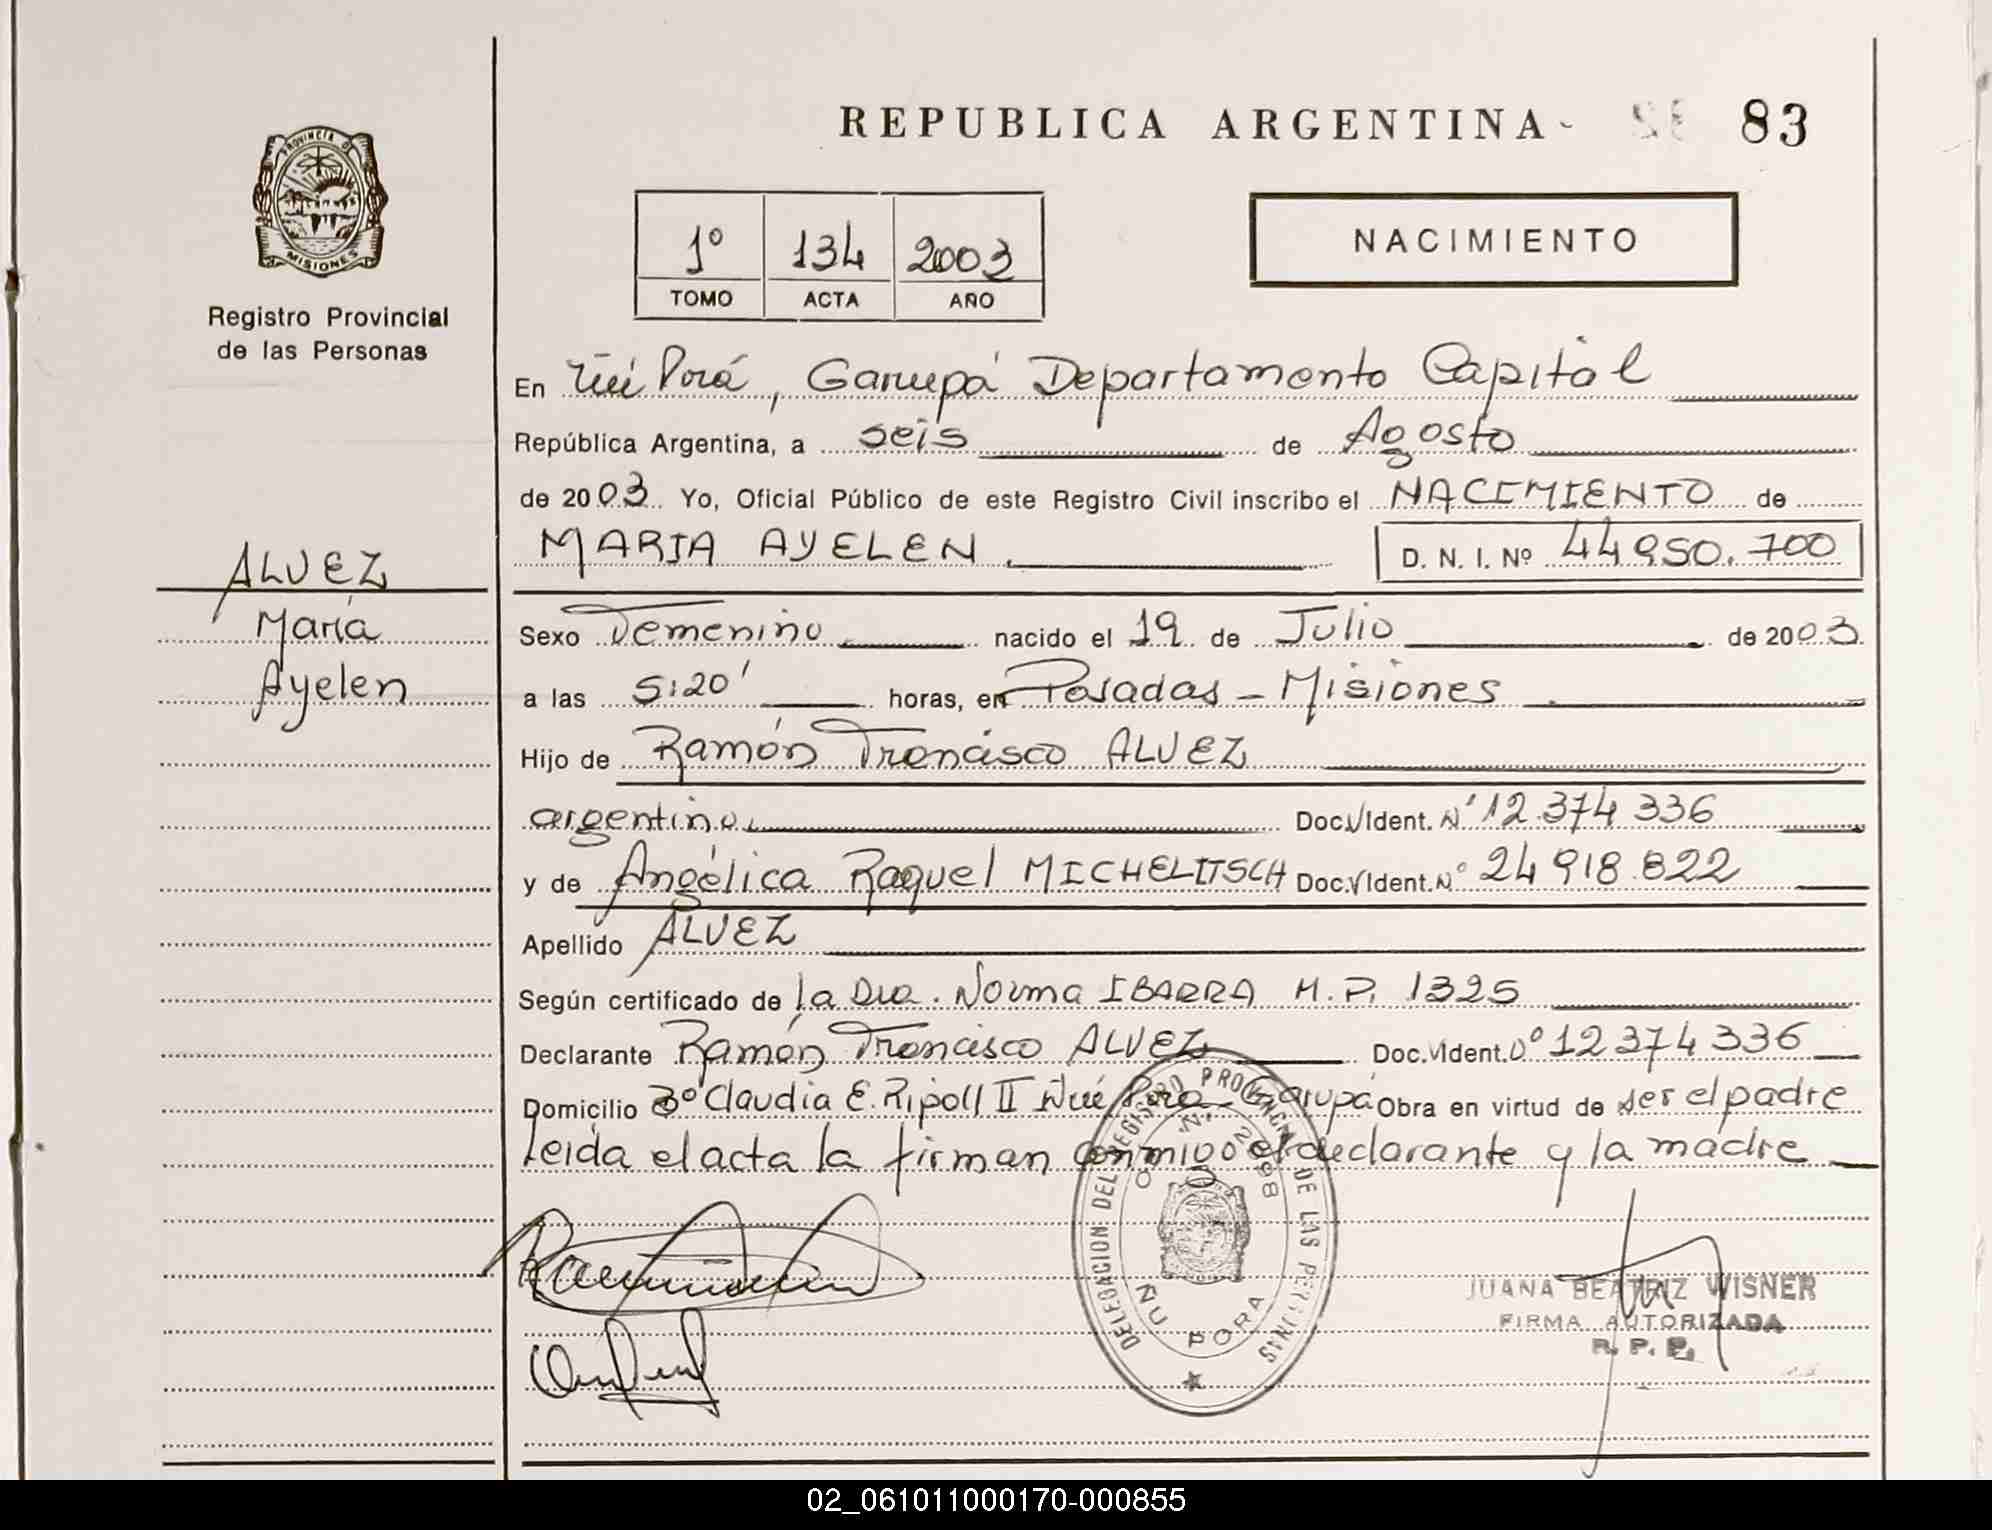 REPUBLICA ARGENTINA
83
PROVINCIA DE
MISIONES
Registro Provincial
de las Personas
1º 134 2003
TOMO ACTA AÑO
NACIMIENTO
En Ñú Porá, Garupá Departamento Capital
República Argentina, a seis de Agosto
de 2003 Yo, Oficial Público de este Registro Civil inscribo el NACIMIENTO de
MARIA AYELEN D. N. I. Nº 44950.700
ALVEZ
María
Ayelen
Sexo Femenino nacido el 19 de Julio de 2003
a las 5:20' horas, en Posadas - Misiones
Hijo de Ramón Francisco ALVEZ
argentino Doc. Ident. Nº 12.374 336
y de Angélica Raquel MICHELITSCH Doc. Ident. Nº 24 918.822
Apellido ALVEZ
Según certificado de la Dra. Norma IBARRA M.P. 1325
Declarante Ramón Francisco ALVEZ Doc. Ident. Nº 12 374 336
Domicilio Bº Claudia E. Ripoll II Ñú Porá - Garupá Obra en virtud de ser el padre
Leida el acta la firman conmigo el declarante y la madre
DELEGACION DEL REGISTRO PROVINCIAL DE LAS PERSONAS
ÑU PORA
JUANA BEATRIZ WISNER
FIRMA AUTORIZADA
R. P. P.
02_061011000170-000855